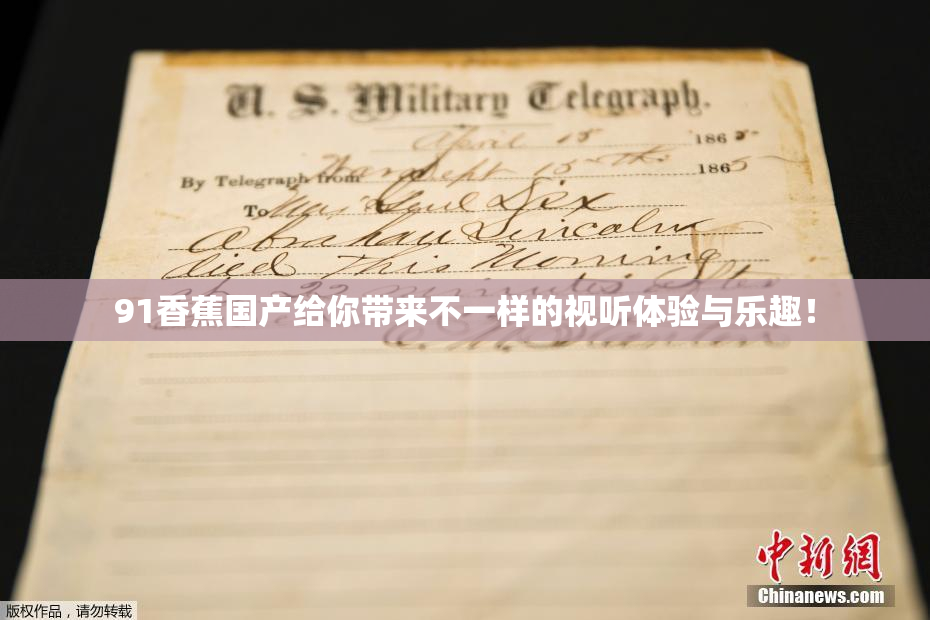 U. S. Military Telegraph.
April 15 1865
By Telegraph from War Dept 15th 1865
To Maj Genl Dix
Abraham Lincoln
died This Morning
at 22 minutes after
91香蕉国产给你带来不一样的视听体验与乐趣！
E. M. Stanton
中新网
Chinanews.com
版权作品，请勿转载